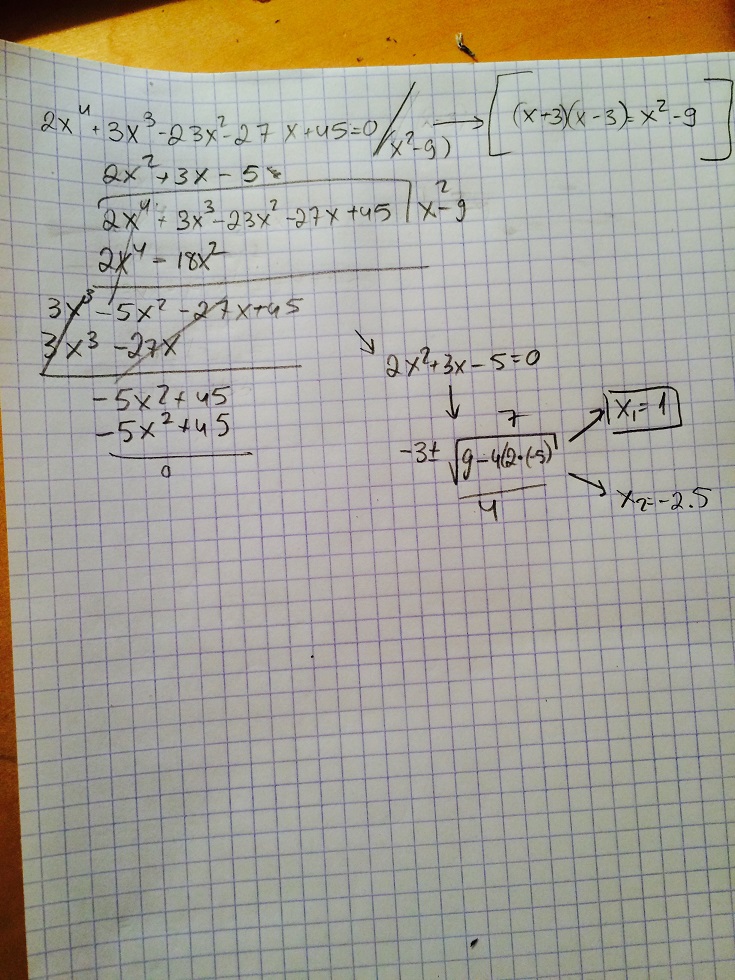 2x⁴+3x³-23x²-27x+45=0/(x²-9) → [(x+3)(x-3)=x²-9]
2x²+3x-5
2x⁴+3x³-23x²-27x+45 | x²-9
2x⁴-18x²
3x³-5x²-27x+45
3x³-27x
-5x²+45
-5x²+45
0
↘ 2x²+3x-5=0
↓
7
-3±√9-4(2·(-5)
4
↗ x₁=1
↘ x₂=-2.5